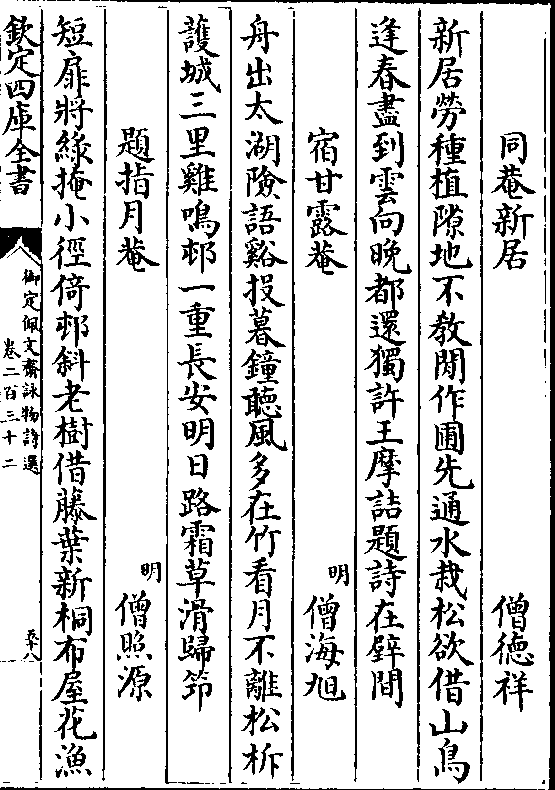 同菴新居 僧德祥
新居勞種植隙地不教閒作圃先通水栽松欲借山鳥
逢春盡到雲向晩都還獨許王摩詰題詩在壁間
宿甘露菴 明 僧海旭
舟出太湖險語谿投暮鐘聽風多在竹看月不離松柝
護城三里雞鳴邨一重長安明日路霜草滑歸笻
題指月菴 明 僧照源
短扉將緑掩小徑倚邨斜老樹借藤葉新桐布屋花漁
欽定四庫全書
御定佩文齋詠物詩選
卷二百三十二
五十八